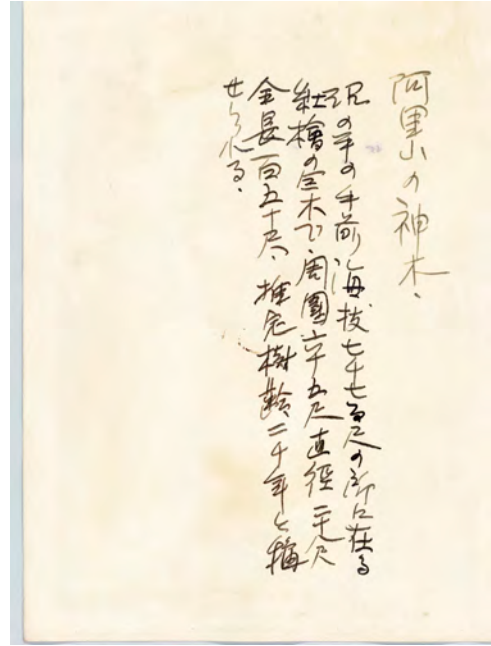 阿里山の神木、
沼の平の手前海抜七千七百尺の所に在る
紅檜ので、周圍六十五尺直徑二十尺
全長百五十尺、推定樹齡二千年と稱
せられる、